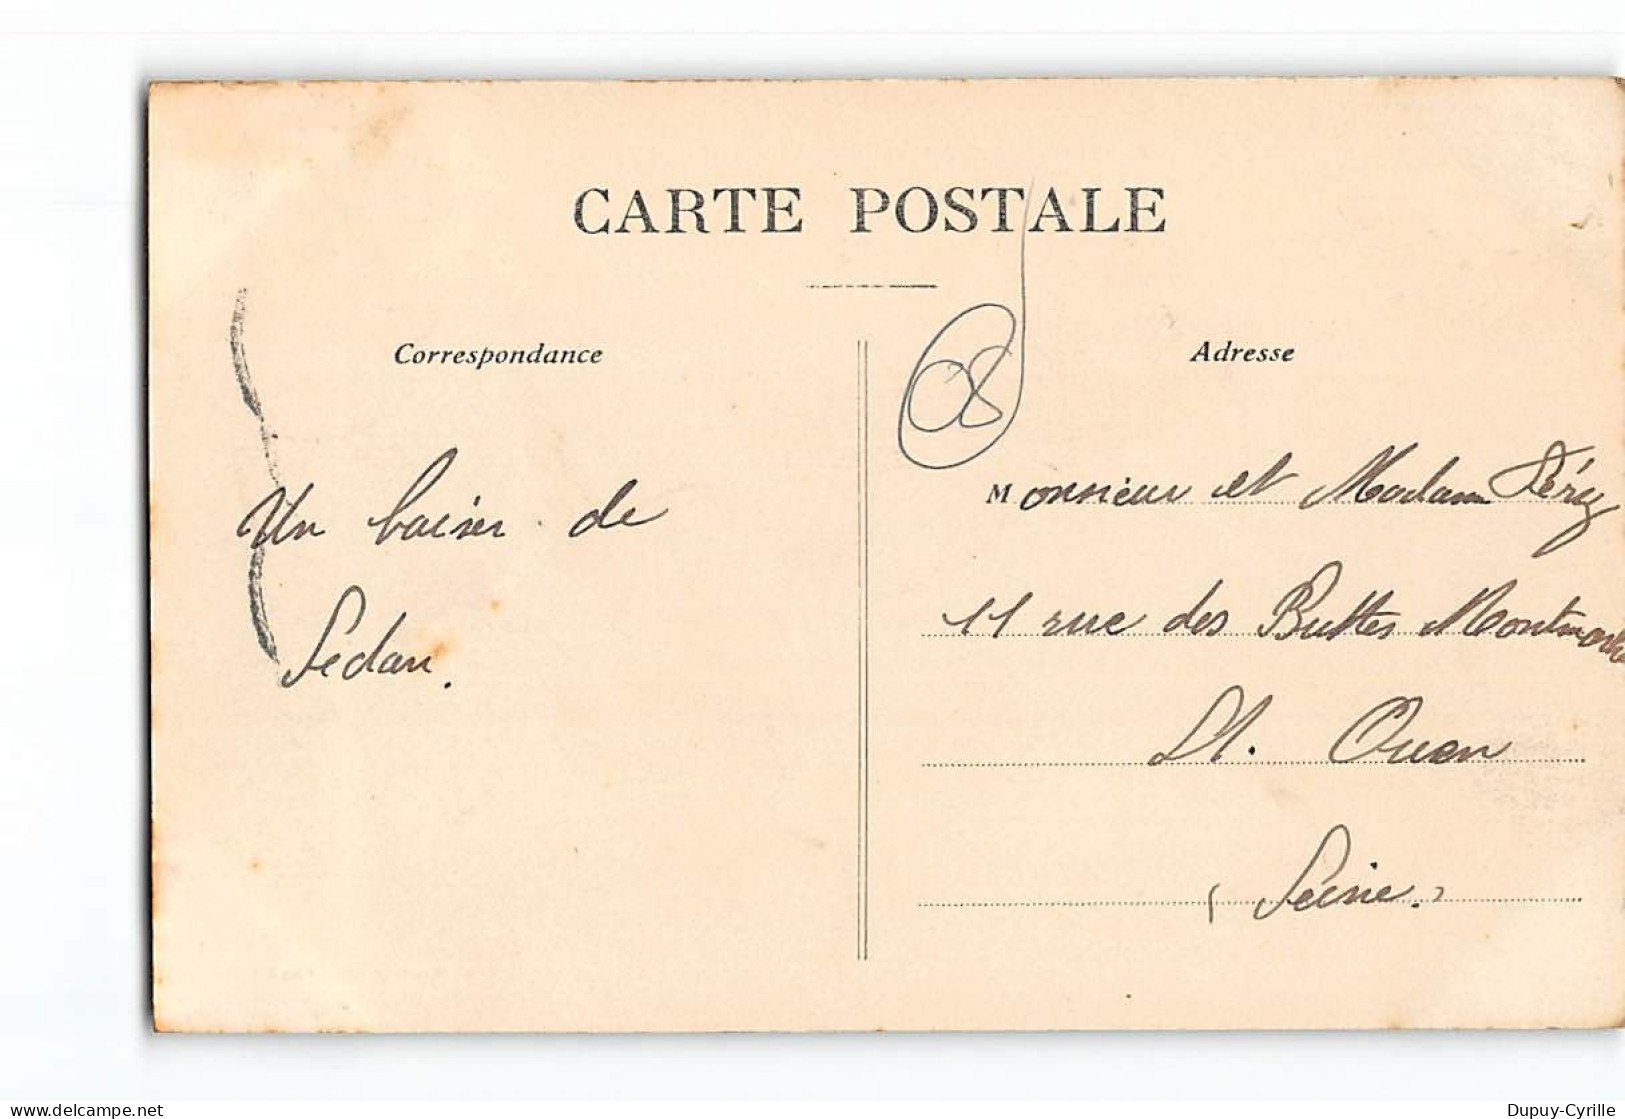 CARTE POSTALE
Correspondance
Un baiser de
Sedan.
Adresse
08
Monsieur et Madam
11 rue des Buttes Montmartre
St. Ouen
(Seine.)
delcampe.net
Dupuy-Cyrille